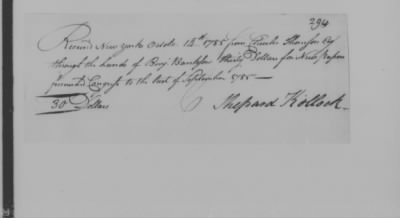 294
Receiv'd New York Octob. 14th 1785 from Charles Thomson Esq
through the hands of Benj Bankson thirty Dollars for News papers
furnish'd Congress to the first of September 1785 —
30 Dollars
Shepard Kollock